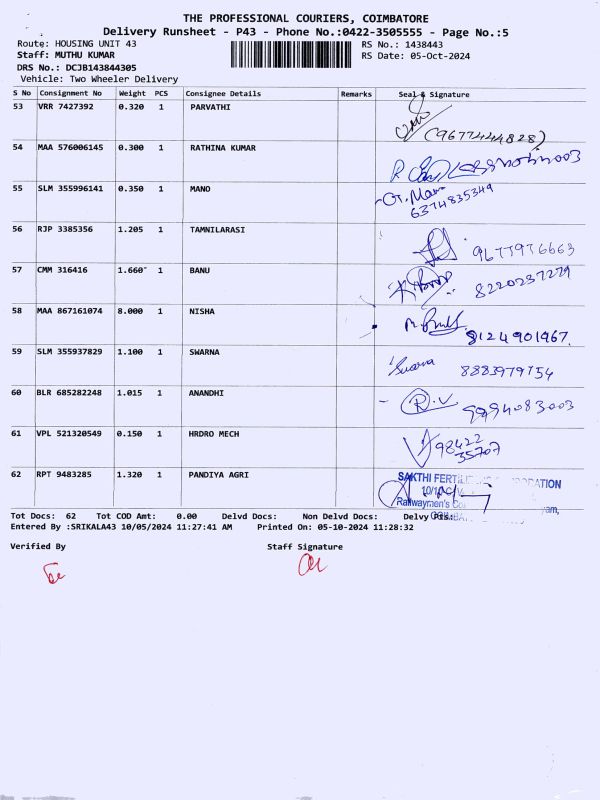 THE PROFESSIONAL COURIERS, COIMBATORE
Delivery Runsheet - P43 - Phone No.:0422-3505555 - Page No.:5
Route: HOUSING UNIT 43 RS No.: 1438443
Staff: MUTHU KUMAR RS Date: 05-Oct-2024
DRS No.: DCJB143844305
Vehicle: Two Wheeler Delivery
S No Consignment No Weight PCS Consignee Details Remarks Seal & Signature
53 VRR 7427392 0.320 1 PARVATHI
(9677444828)
54 MAA 576006145 0.300 1 RATHINA KUMAR
55 SLM 355996141 0.350 1 MANO
6374835349
56 RJP 3385356 1.205 1 TAMNILARASI
9677976663
57 CMM 316416 1.660 1 BANU
8220237279
58 MAA 867161074 8.000 1 NISHA
8124901967.
59 SLM 355937829 1.100 1 SWARNA
Swarna 8883979754
60 BLR 685282248 1.015 1 ANANDHI
R.V 9994083003
61 VPL 521320549 0.150 1 HRDRO MECH
98422
35707
62 RPT 9483285 1.320 1 PANDIYA AGRI
SAKTHI FERTILI
Railwaymen's Co
Tot Docs: 62 Tot COD Amt: 0.00 Delvd Docs: Non Delvd Docs: Delvy Pts:
Entered By :SRIKALA43 10/05/2024 11:27:41 AM Printed On: 05-10-2024 11:28:32
Verified By Staff Signature